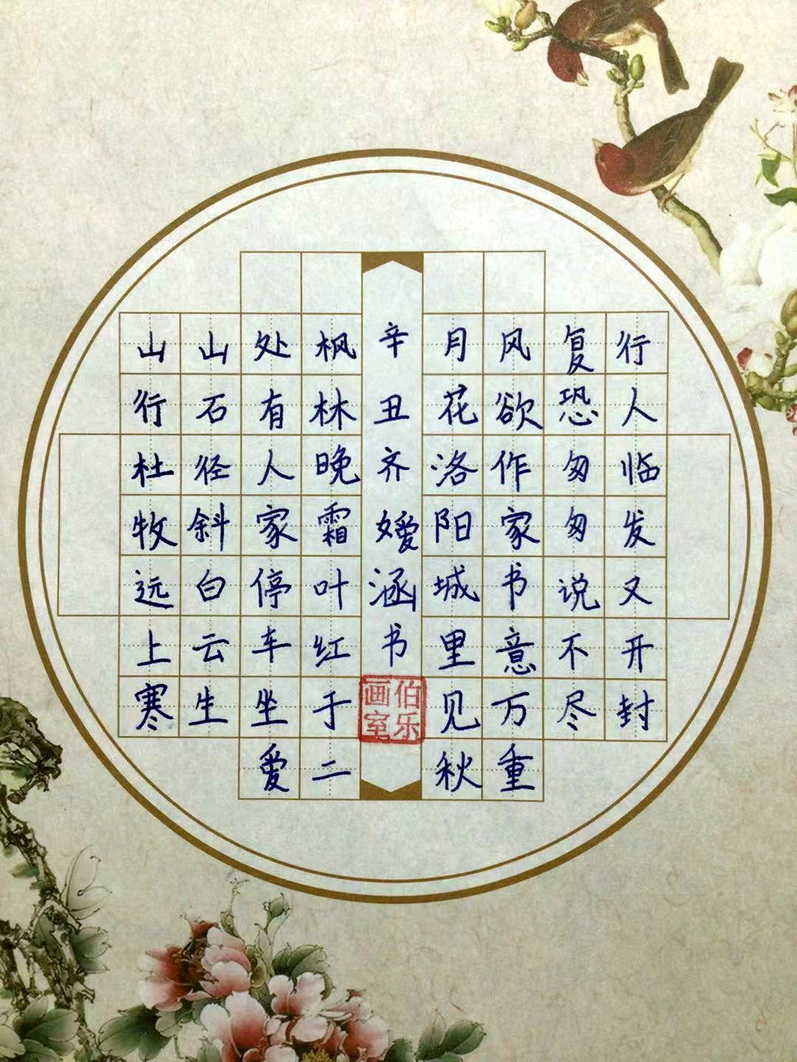 山行杜牧远上寒
山石径斜白云生
处有人家停车坐爱
枫林晚霜叶红于二
月花洛阳城里见秋
风欲作家书意万重
复恐匆匆说不尽
行人临发又开封
辛丑齐嫒涵书
伯乐
画室